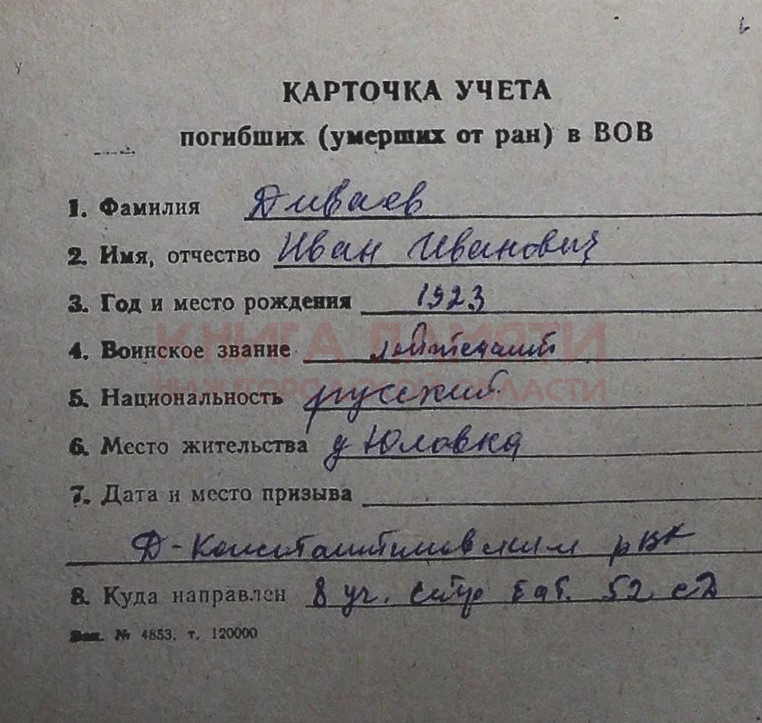 КАРТОЧКА УЧЕТА
погибших (умерших от ран) в ВОВ
1. Фамилия Диваев
2. Имя, отчество Иван Иванович
3. Год и место рождения 1923
4. Воинское звание лейтенант
КНИГА ПАМЯТИ
НИЖЕГОРОДСКОЙ ОБЛАСТИ
5. Национальность русский
6. Место жительства д Юловка
7. Дата и место призыва
Д-Константиновским рвк
8. Куда направлен 8 уч. стр бат. 52 сд
Зак. № 4853. т. 120000